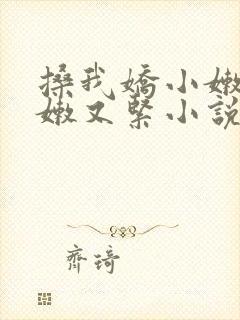 搡我嬌小嫩
嫩又緊小說
齊琦